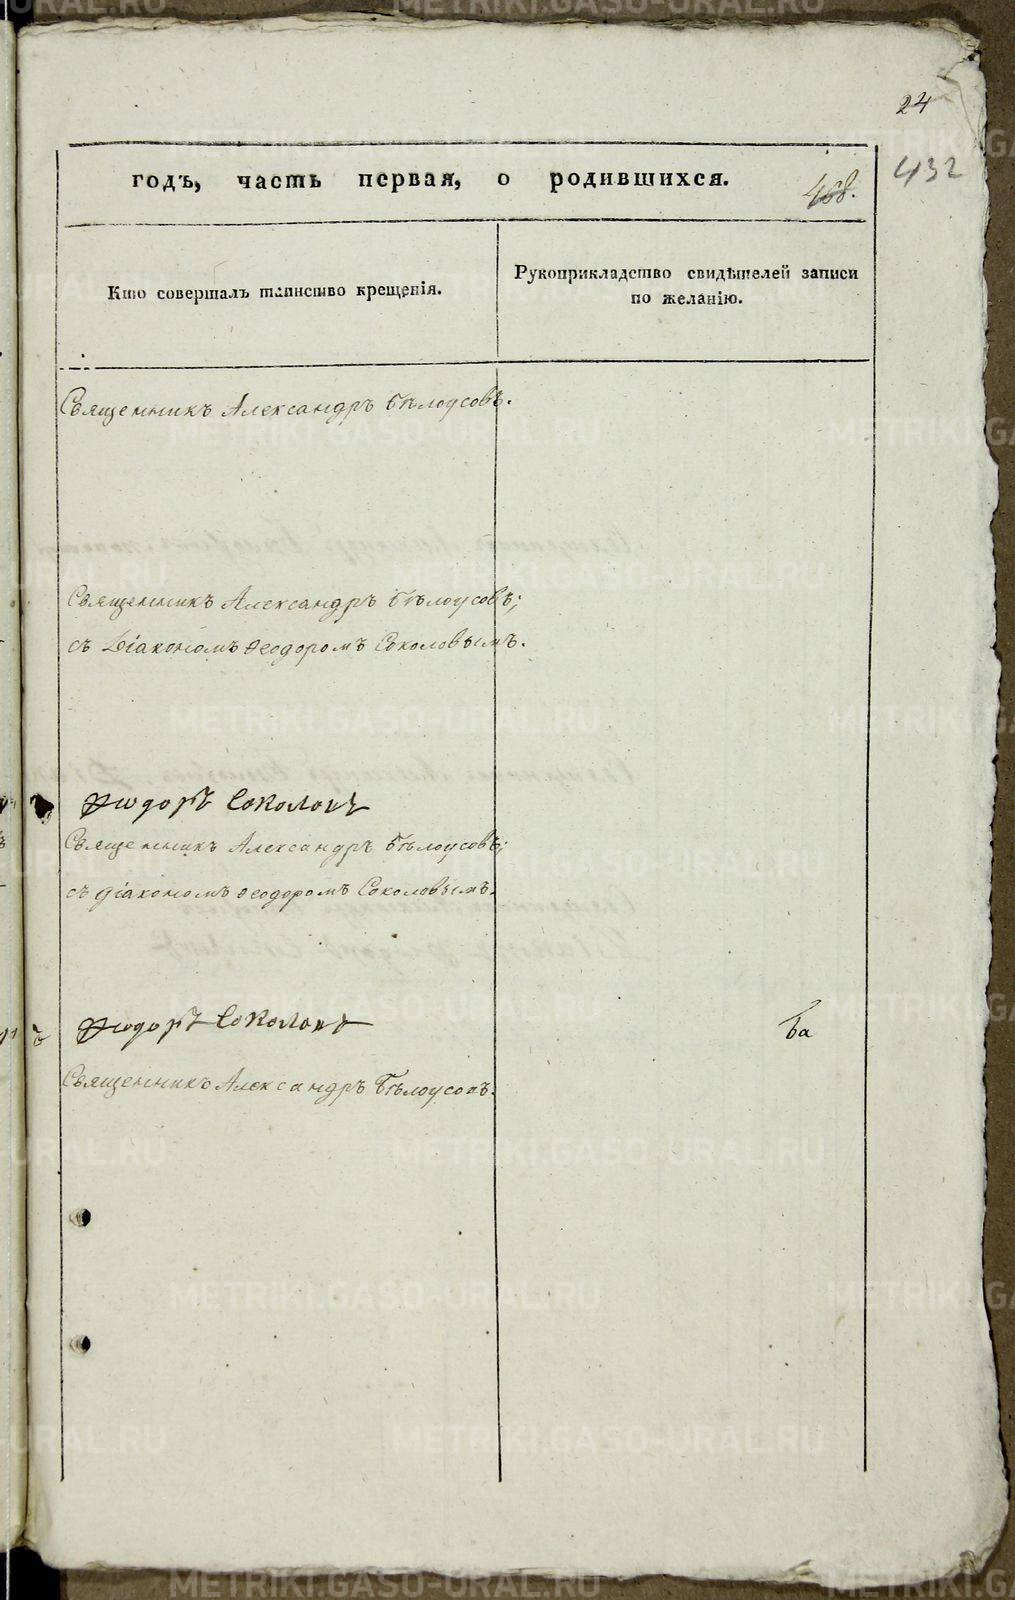 24
432
годъ, часть первая, о родившихся.
468.
Кто совершалъ таинство крещенія.
Рукоприкладство свидѣтелей записи
по желанію.
Священникъ Александръ Бѣлоусовъ.
Священникъ Александръ Бѣлоусовъ;
съ Діакономъ Ѳеодоромъ Соколовымъ.
Ѳиодоръ Соколовъ
Священникъ Александръ Бѣлоусовъ;
съ діакономъ Ѳеодоромъ Соколовымъ.
Ѳиодоръ Соколовъ
Священникъ Александръ Бѣлоусовъ.
METRIKI.GASO-URAL.RU